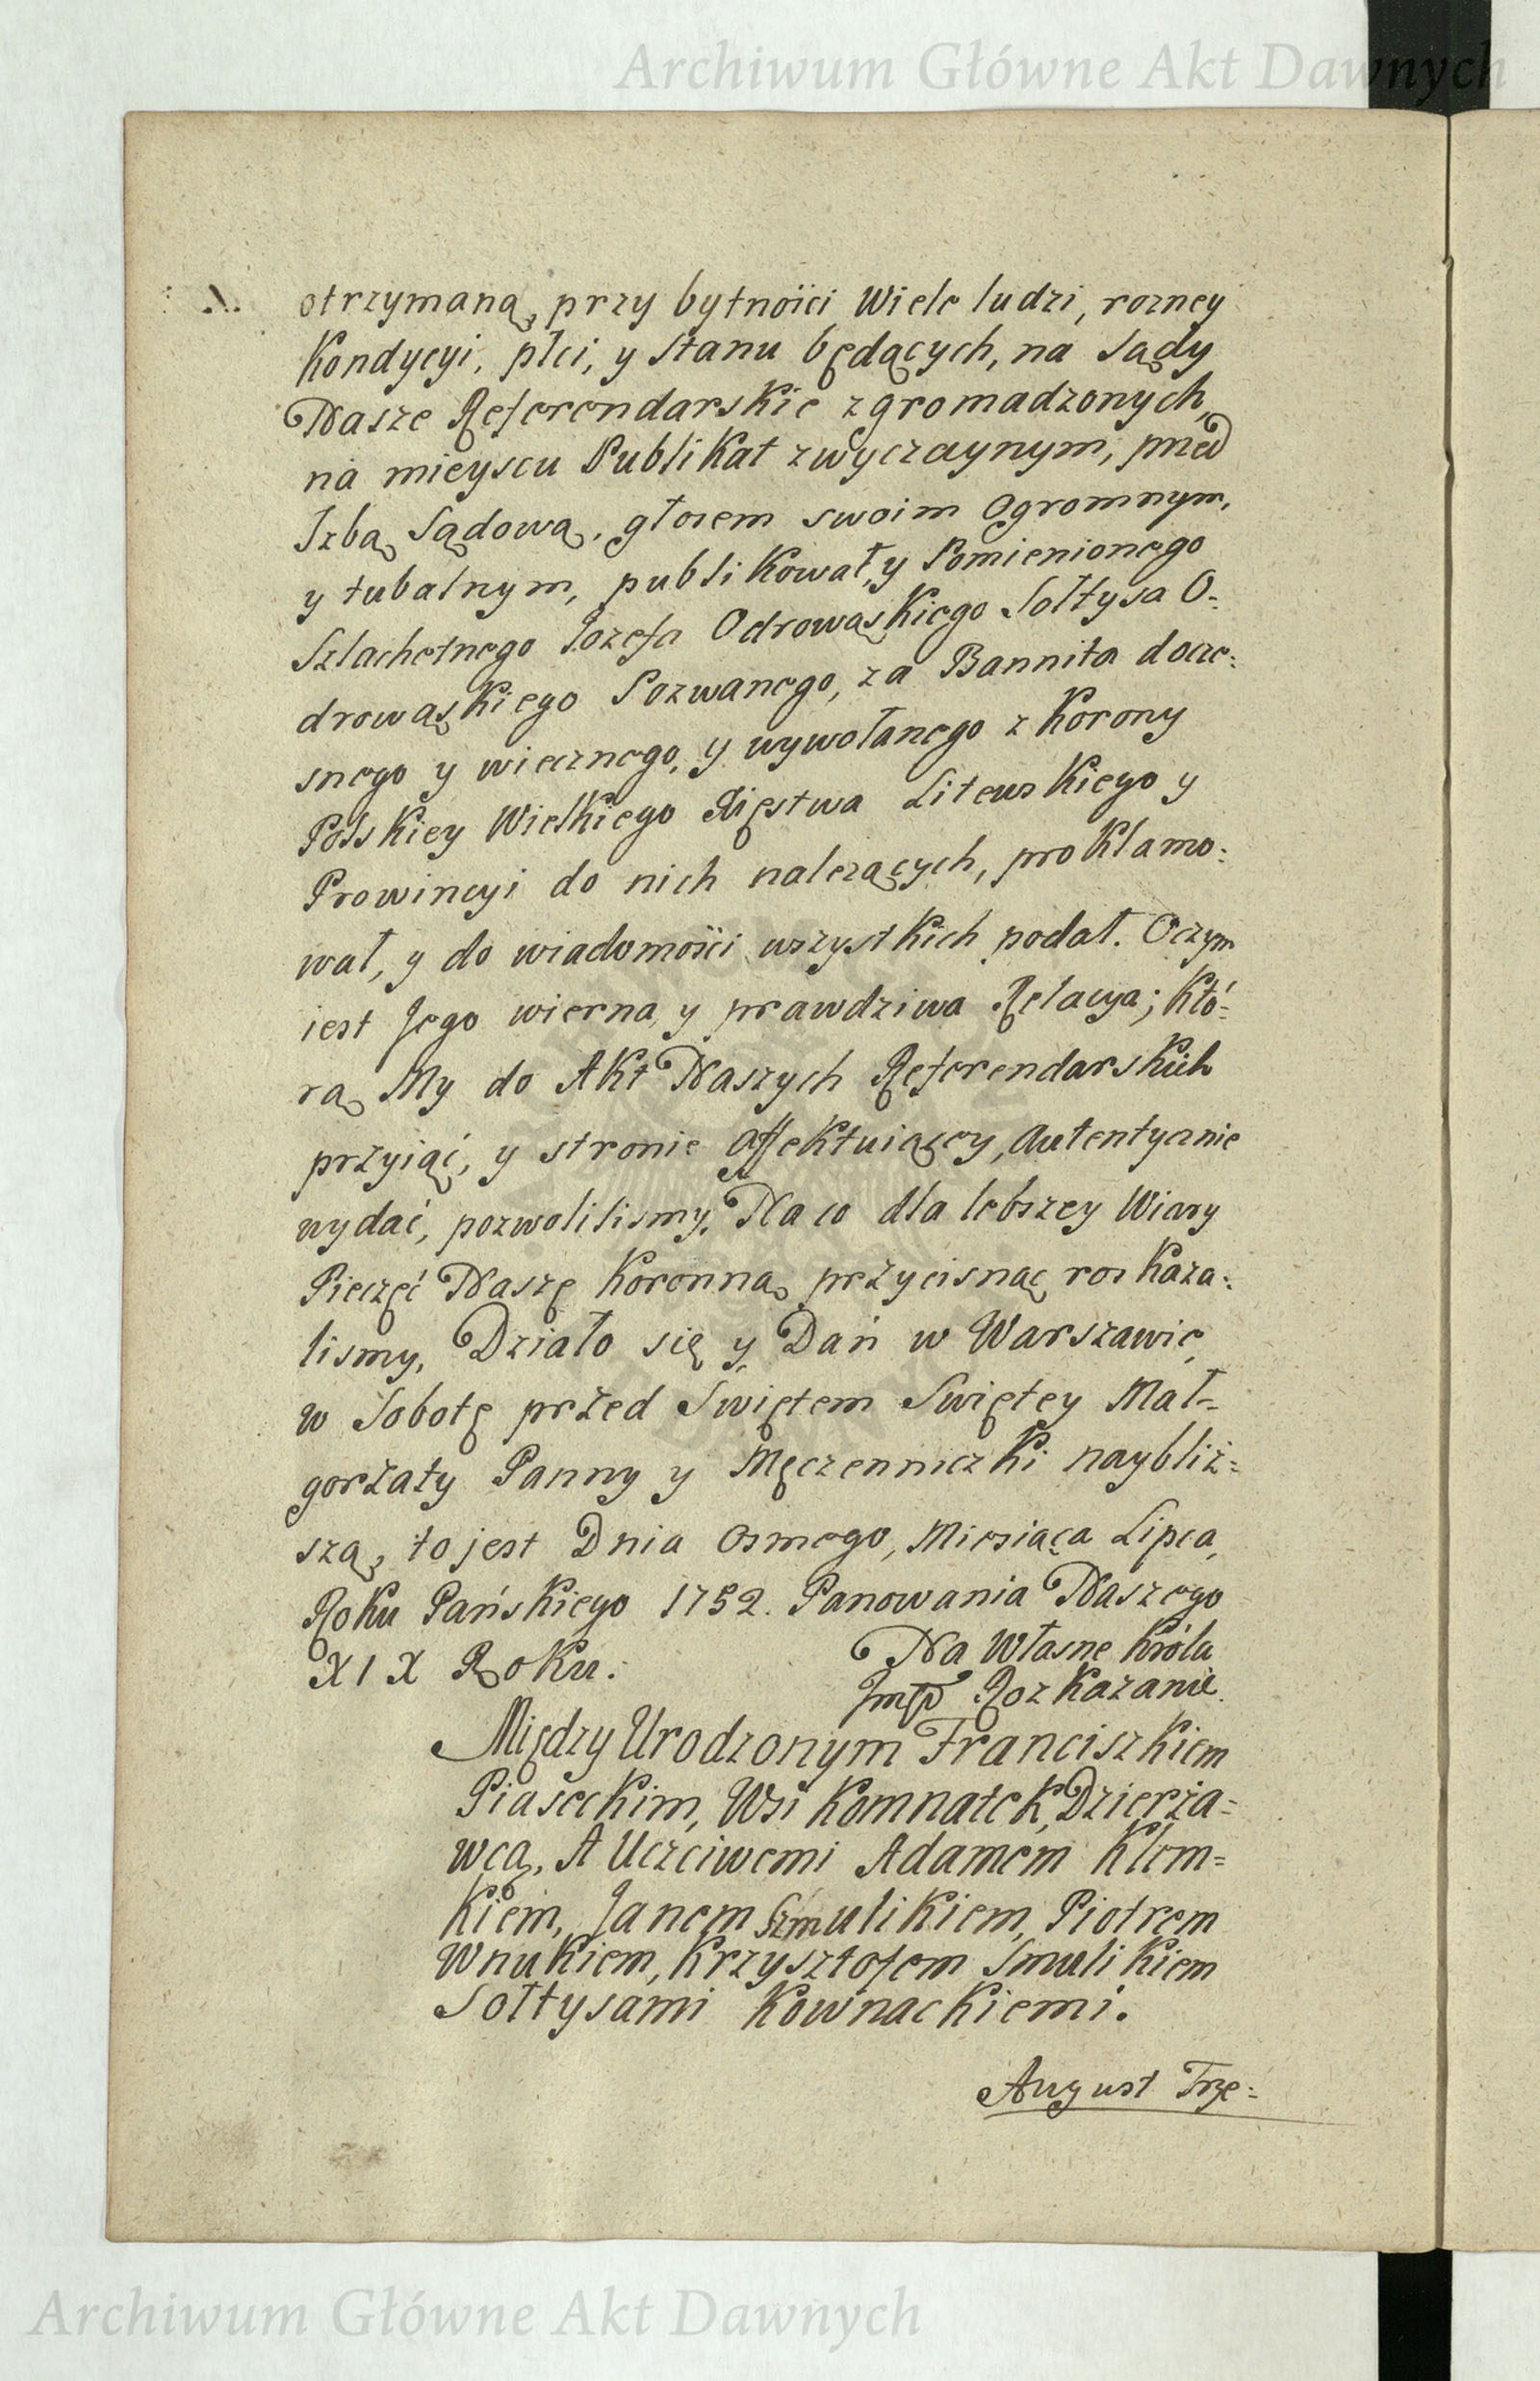 Archiwum Główne Akt Dawnych
otrzymaną, przy bytności Wiele ludzi, rozney
Kondycyi, płci, y Stanu będących, na Sądy
Nasze Referendarskie zgromadzonych
na mieyscu Publikat zwyczaynym, przed
Izbą Sądową, głosem swoim Ogromnym,
y tubalnym, publikował, y Pomienionego
Szlachetnego Jozefa Odrowąskiego Sołtysa O-
drowąskiego Pozwanego, za Bannita docze:
snego y wiecznego, y wywołanego z Korony
Polskiey Wielkiego Xięstwa Litewskiego y
Prowincyi do nich nalezących, proklamo:
wał, y do wiadomości wszystkich podał. Oczym
iest Jego wierna y prawdziwa Relacya; Któ-
rą My do Akt Naszych Referendarskich
przyiąć, y stronie affektuiącey, autentycznie
wydać, pozwolilismy. Na co dla lebszey Wiary
Pieczęć Naszę Koronną przycisnąć roskaza:
lismy. Działo się y Dań w Warszawie,
w Sobotę przed Swiętem Swiętey Mał-
gorżaty Panny y Męczenniczki naybliż=
szą, to jest Dnia Osmego, Miesiąca Lipca,
Roku Pańskiego 1752. Panowania Naszego
XIX Roku.
Na Własne Króla
Jmṡ̃ Rozkazanie.
Między Urodzonym Franciszkiem
Piaseckim, Wsi Komnatek, Dzierża=
wcą, A Uczciwemi Adamem Klem=
kiem, Janem Szmulikiem, Piotrem
Wnukiem, Krzysztofem Smulikiem
Sołtysami Kownackiemi.
August Trze:
Archiwum Główne Akt Dawnych